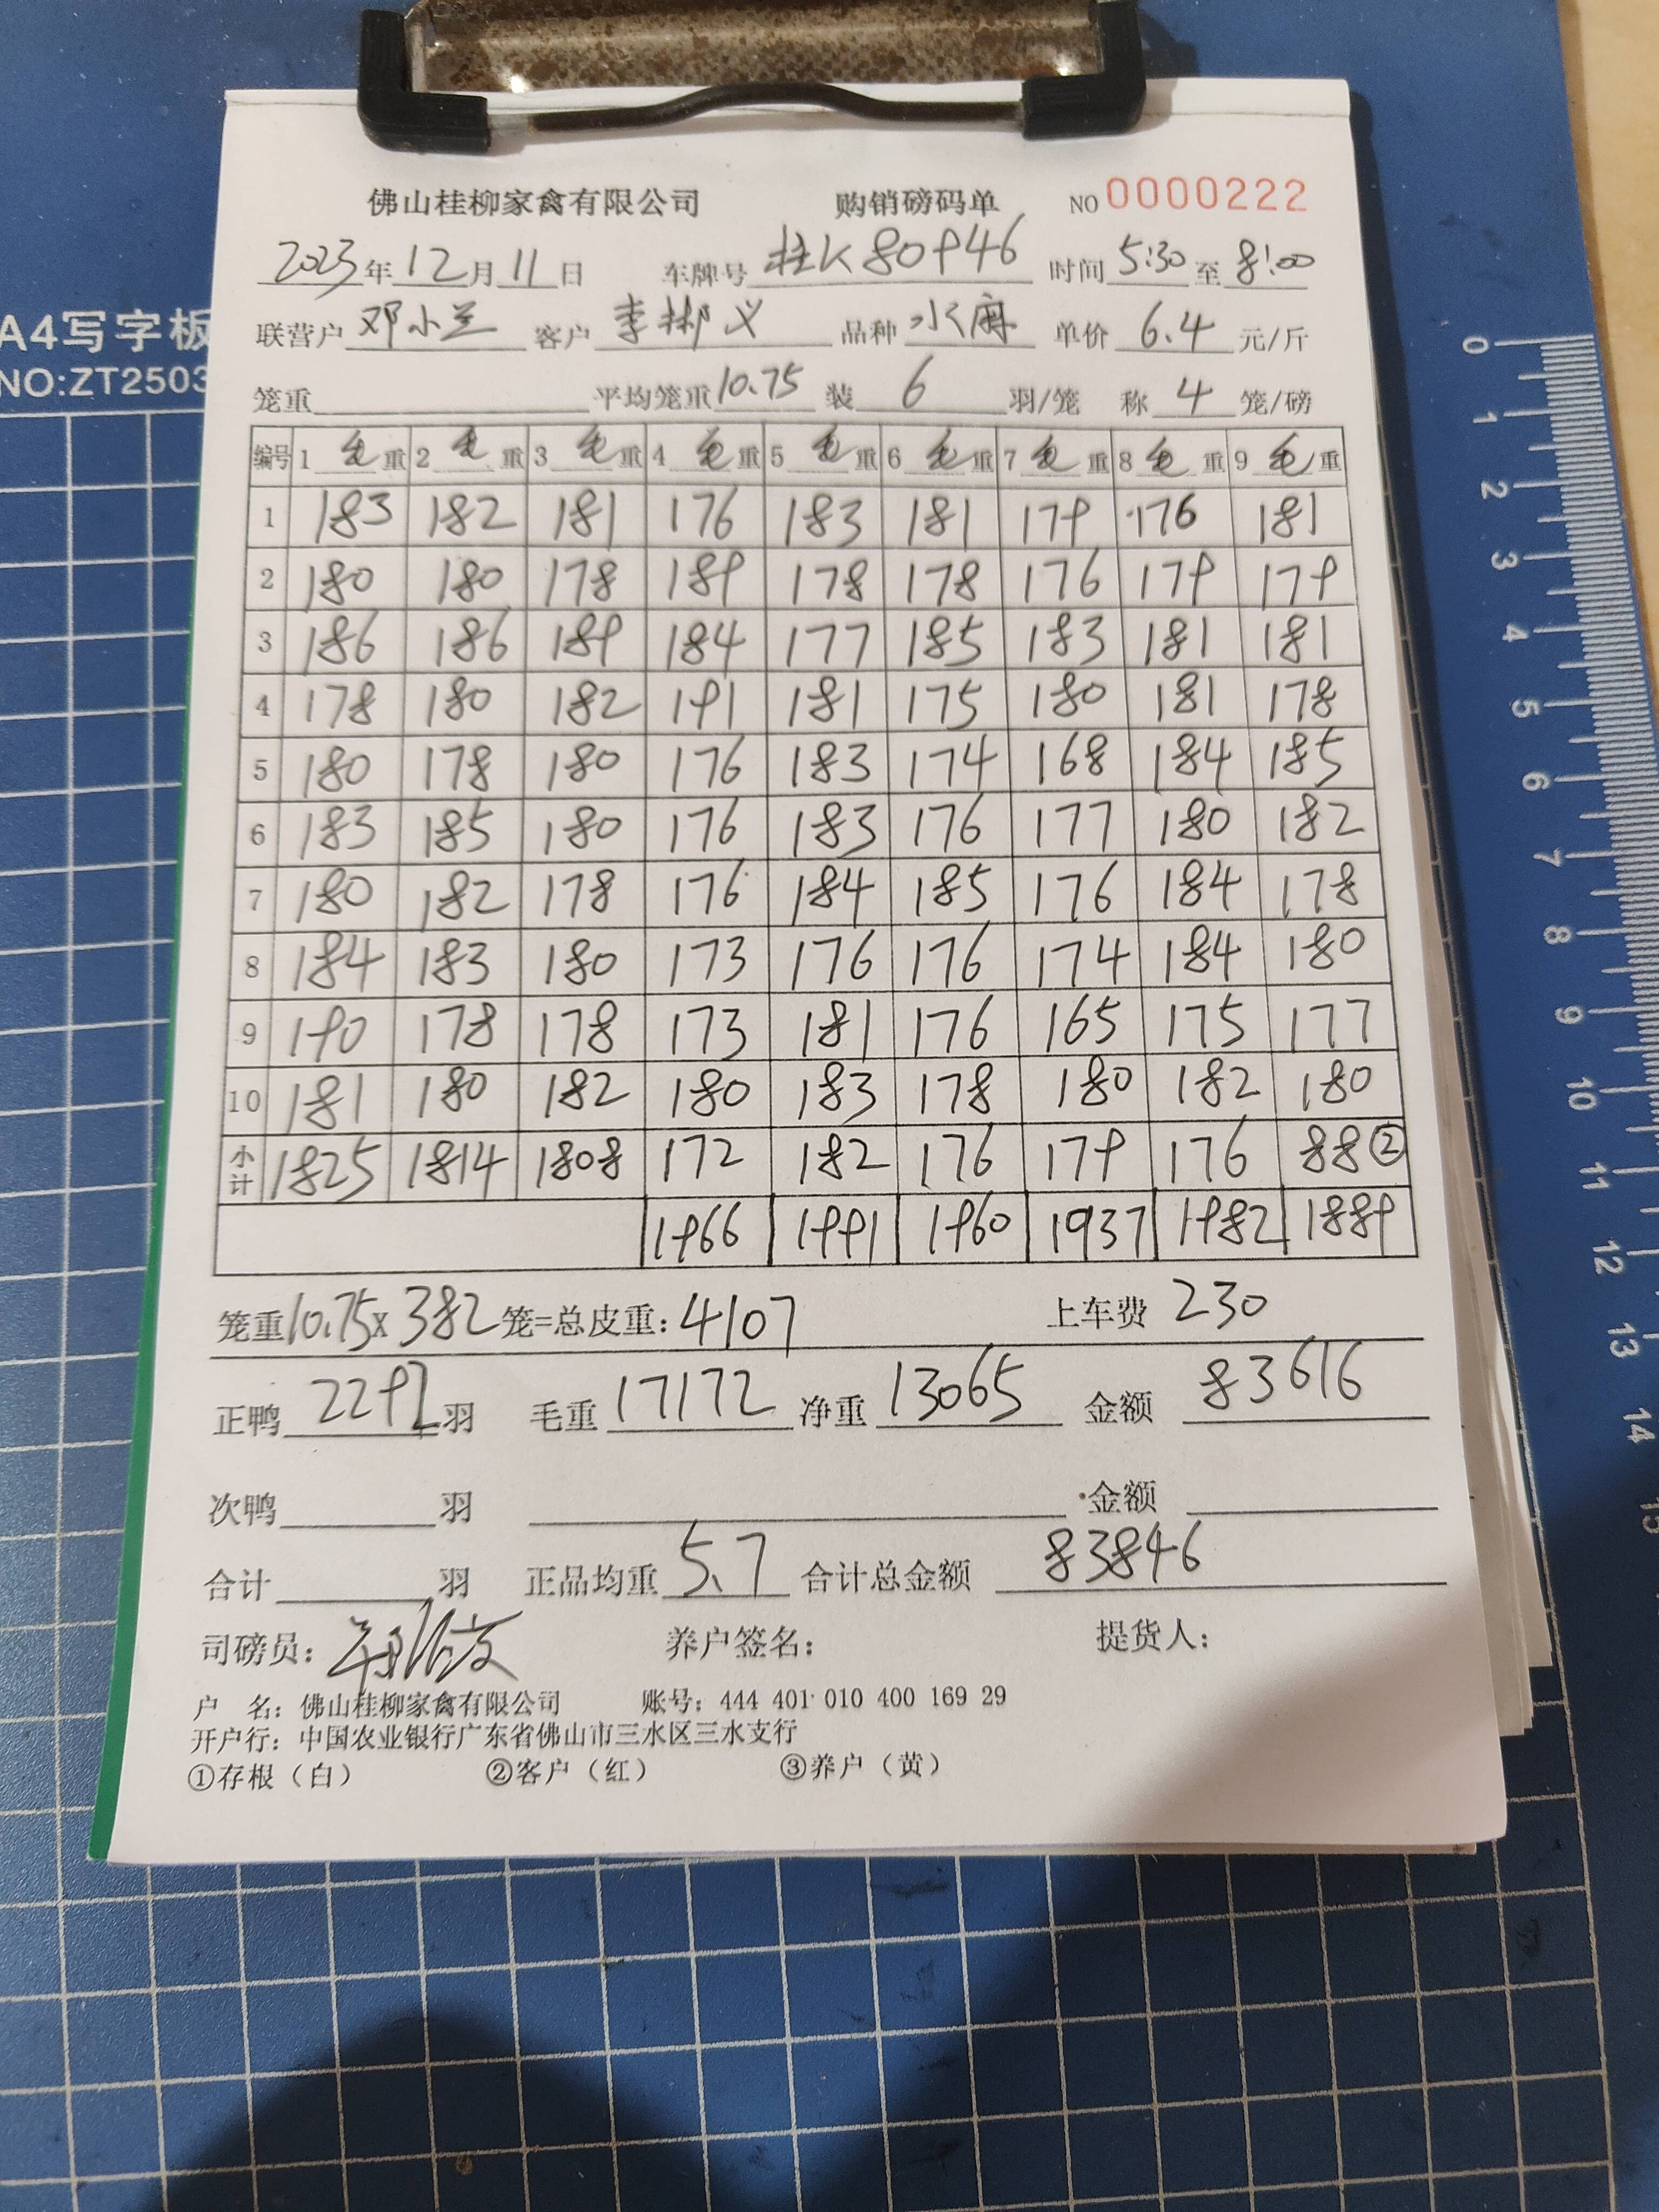 佛山桂柳家禽有限公司 购销磅码单 NO 0000222
2023年12月11日 车牌号 桂K80946 时间 5:30 至 8:00
A4写字板
NO:ZT2503
联营户 邓小兰 客户 李彬义 品种 水麻 单价 6.4 元/斤
笼重 平均笼重 10.75 装 6 羽/笼 称 4 笼/磅
编号 1 毛重 2 毛重 3 毛重 4 毛重 5 毛重 6 毛重 7 毛重 8 毛重 9 毛重
1 183 182 181 176 183 181 179 176 181
2 180 180 178 189 178 178 176 179 179
3 186 186 189 184 177 185 183 181 181
4 178 180 182 191 181 175 180 181 178
5 180 178 180 176 183 174 168 184 185
6 183 185 180 176 183 176 177 180 182
7 180 182 178 176 184 185 176 184 178
8 184 183 180 173 176 176 174 184 180
9 190 178 178 173 181 176 165 175 177
10 181 180 182 180 183 178 180 182 180
小计 1825 1814 1808 172 182 176 179 176 88②
1966 1991 1960 1937 1982 1889
笼重10.75x382笼=总皮重: 4107 上车费 230
正鸭 2292 羽 毛重 17172 净重 13065 金额 83616
次鸭 羽 金额
合计 羽 正品均重 5.7 合计总金额 83846
司磅员: 养户签名: 提货人:
户 名: 佛山桂柳家禽有限公司 账号: 444 401 010 400 169 29
开户行: 中国农业银行广东省佛山市三水区三水支行
①存根（白） ②客户（红） ③养户（黄）
0
1
2
3
4
5
6
7
8
9
10
11
12
13
14
15